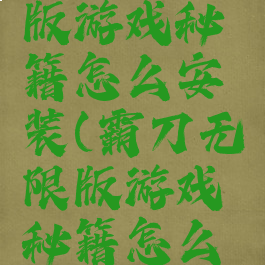 版游戏秘
籍怎么安
装(霸刀无
限版游戏
秘籍怎么